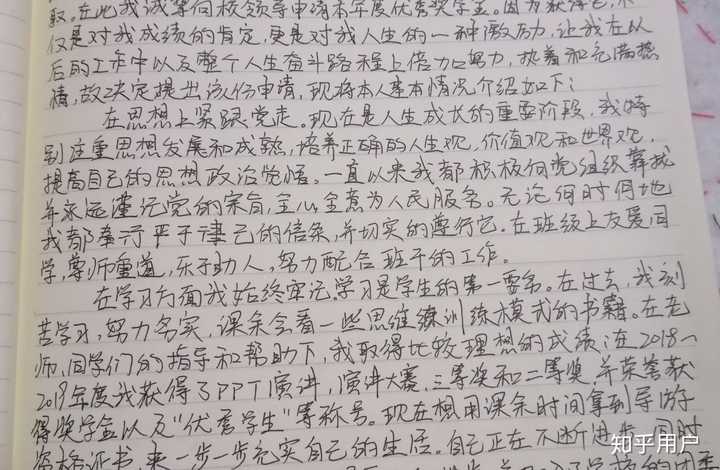 取。在此我诚挚向校领导申请本年度优秀奖学金。因为获得它,不
仅是对我成绩的肯定,更是对我人生的一种激励,让我在以
后的工作中以及整个人生奋斗路程上倍加努力,热着和充满热
情,故决定提出该份申请,现将本人基本情况介绍如下:
在思想上紧跟党走。现在是人生成长的重要阶段,我特
别注重思想发展和成熟,培养正确的人生观,价值观和世界观,
提高自己的思想政治觉悟。一直以来我都积极向党组织靠拢
并永远谨记党的宗旨,全心全意为人民服务。无论何时何地
我都奉行严于律己的信条,并切实的遵行它。在班级上友爱同
学,尊师重道,乐于助人,努力配合班干的工作。
在学习方面我始终牢记学习是学生的第一要务。在过去,我刻
苦学习,努力务实,课余会看一些思维训练模式的书籍。在老
师,同学们的指导和帮助下,我取得比较理想的成绩;在2018一
2019年度我获得了PPT演讲,演讲大赛,三等奖和二等奖,并荣誉获
得奖学金以及“优秀学生”等称号。现在想用课余时间拿到导游
资格证书,来一步一步充实自己的生活。自己正在不断进步,同时
知乎用户